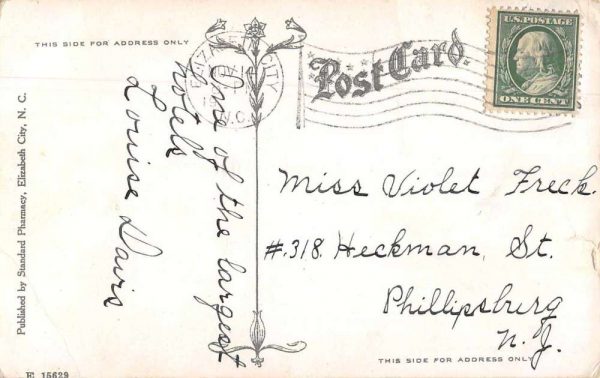 THIS SIDE FOR ADDRESS ONLY
Post Card.
U.S. POSTAGE
ONE CENT
ELIZABETH CITY
N.C.
One of the largest
hotels
Louise Davis
Miss Violet Freck.
#.318. Heckman, St.
Phillipsburg
N. J.
THIS SIDE FOR ADDRESS ONLY
Published by Standard Pharmacy, Elizabeth City, N. C.
E 15629